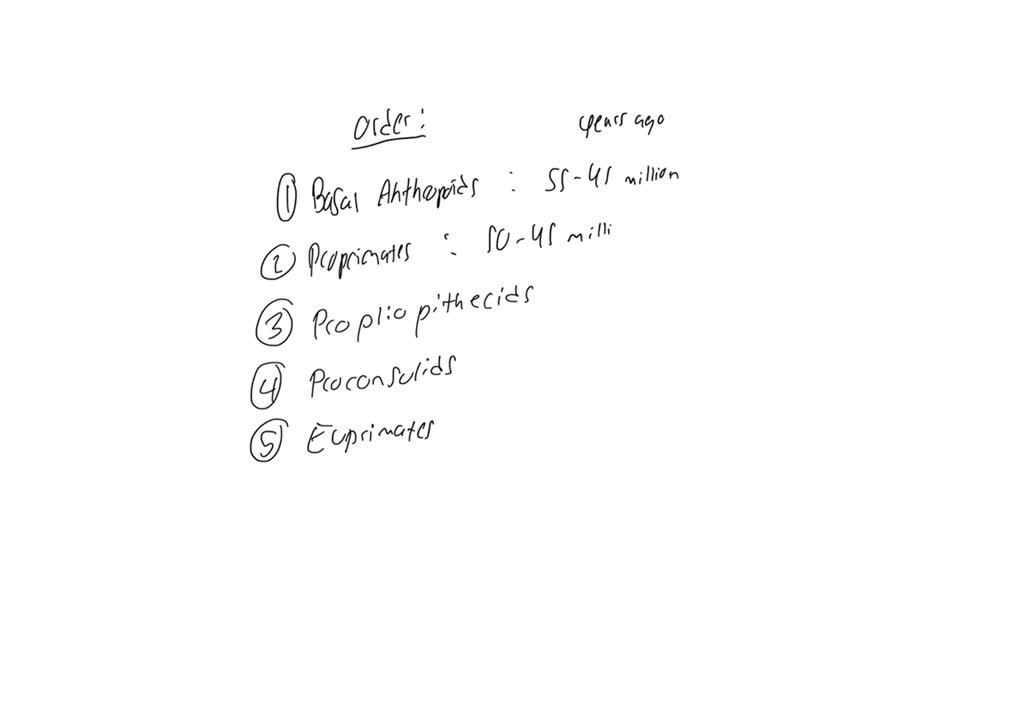 Order: years ago
① Basal Anthropoids : 55-45 million
② Proprimates : 50-45 milli
③ Propliopithecids
④ Proconsulids
⑤ Euprimates